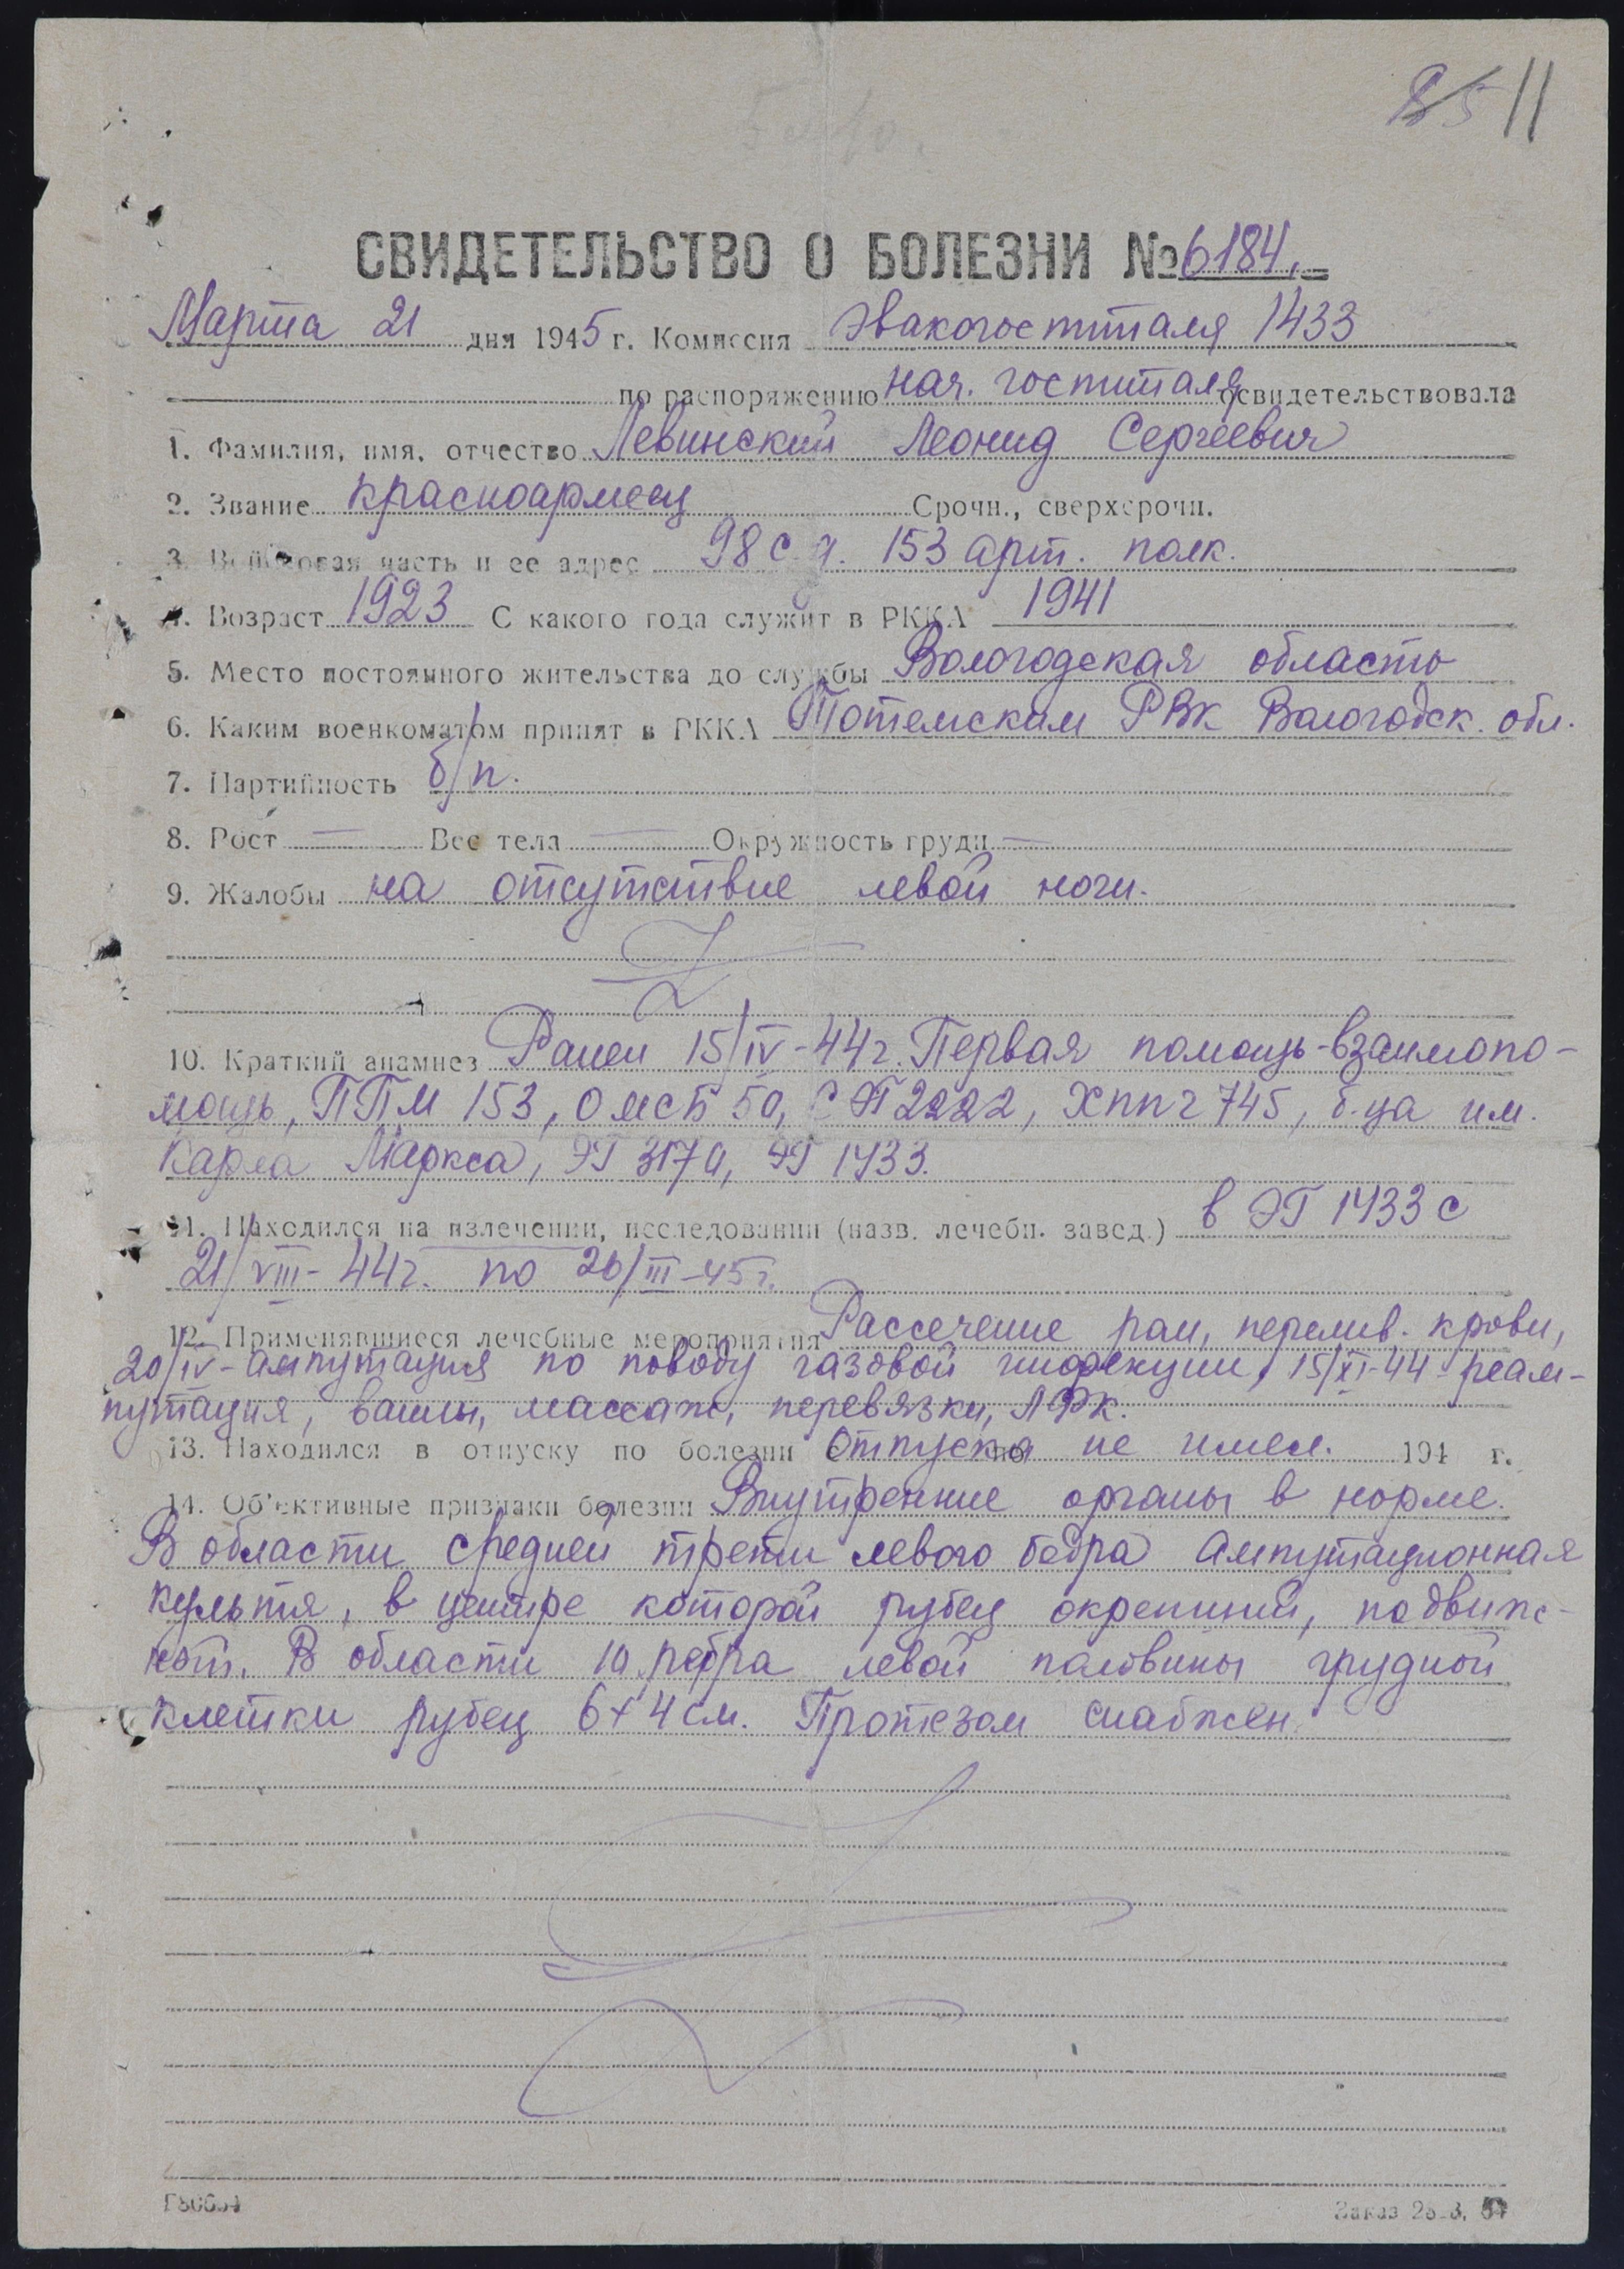 85 11
СВИДЕТЕЛЬСТВО О БОЛЕЗНИ №6184.
Марта 21 дня 1945 г. Комиссия Эвакогоспиталя 1433
по распоряжению нач. госпиталя освидетельствовала
1. Фамилия, имя, отчество Левинский Леонид Сергеевич
2. Звание красноармеец Срочн., сверхсрочн.
3. Войсковая часть и ее адрес 98 с.д. 153 арт. полк.
4. Возраст 1923 С какого года служит в РККА 1941
5. Место постоянного жительства до службы Вологодская область
6. Каким военкоматом принят в РККА Тотемским РВК Вологодск. обл.
7. Партийность б/п.
8. Рост — Вес тела — Окружность груди —
9. Жалобы на отсутствие левой ноги.
10. Краткий анамнез Ранен 15/IV-44г. Первая помощь-взаимопо-
мощь, ППМ 153, ОМСБ 50, СЭГ 2222, ХППГ 745, б-ца им.
Карла Маркса, ЭГ 3170, ЭГ 1433.
11. Находился на излечении, исследовании (назв. лечебн. завед.) в ЭГ 1433 с
21/VIII-44г. по 26/III-45г.
12. Применявшиеся лечебные мероприятия Рассечение ран, перелив. крови,
20/IV-ампутация по поводу газовой инфекции, 15/XI-44 реам-
путация, ванны, массаж, перевязки, ЛФК.
13. Находился в отпуску по болезни отпуска не имел. 194 г.
14. Об'ективные признаки болезни Внутренние органы в норме.
В области средней трети левого бедра ампутационная
культя, в центре которой рубец окрепший, подвиж-
ной. В области 10 ребра левой половины грудной
клетки рубец 6×4 см. Протезом снабжен.
Заказ